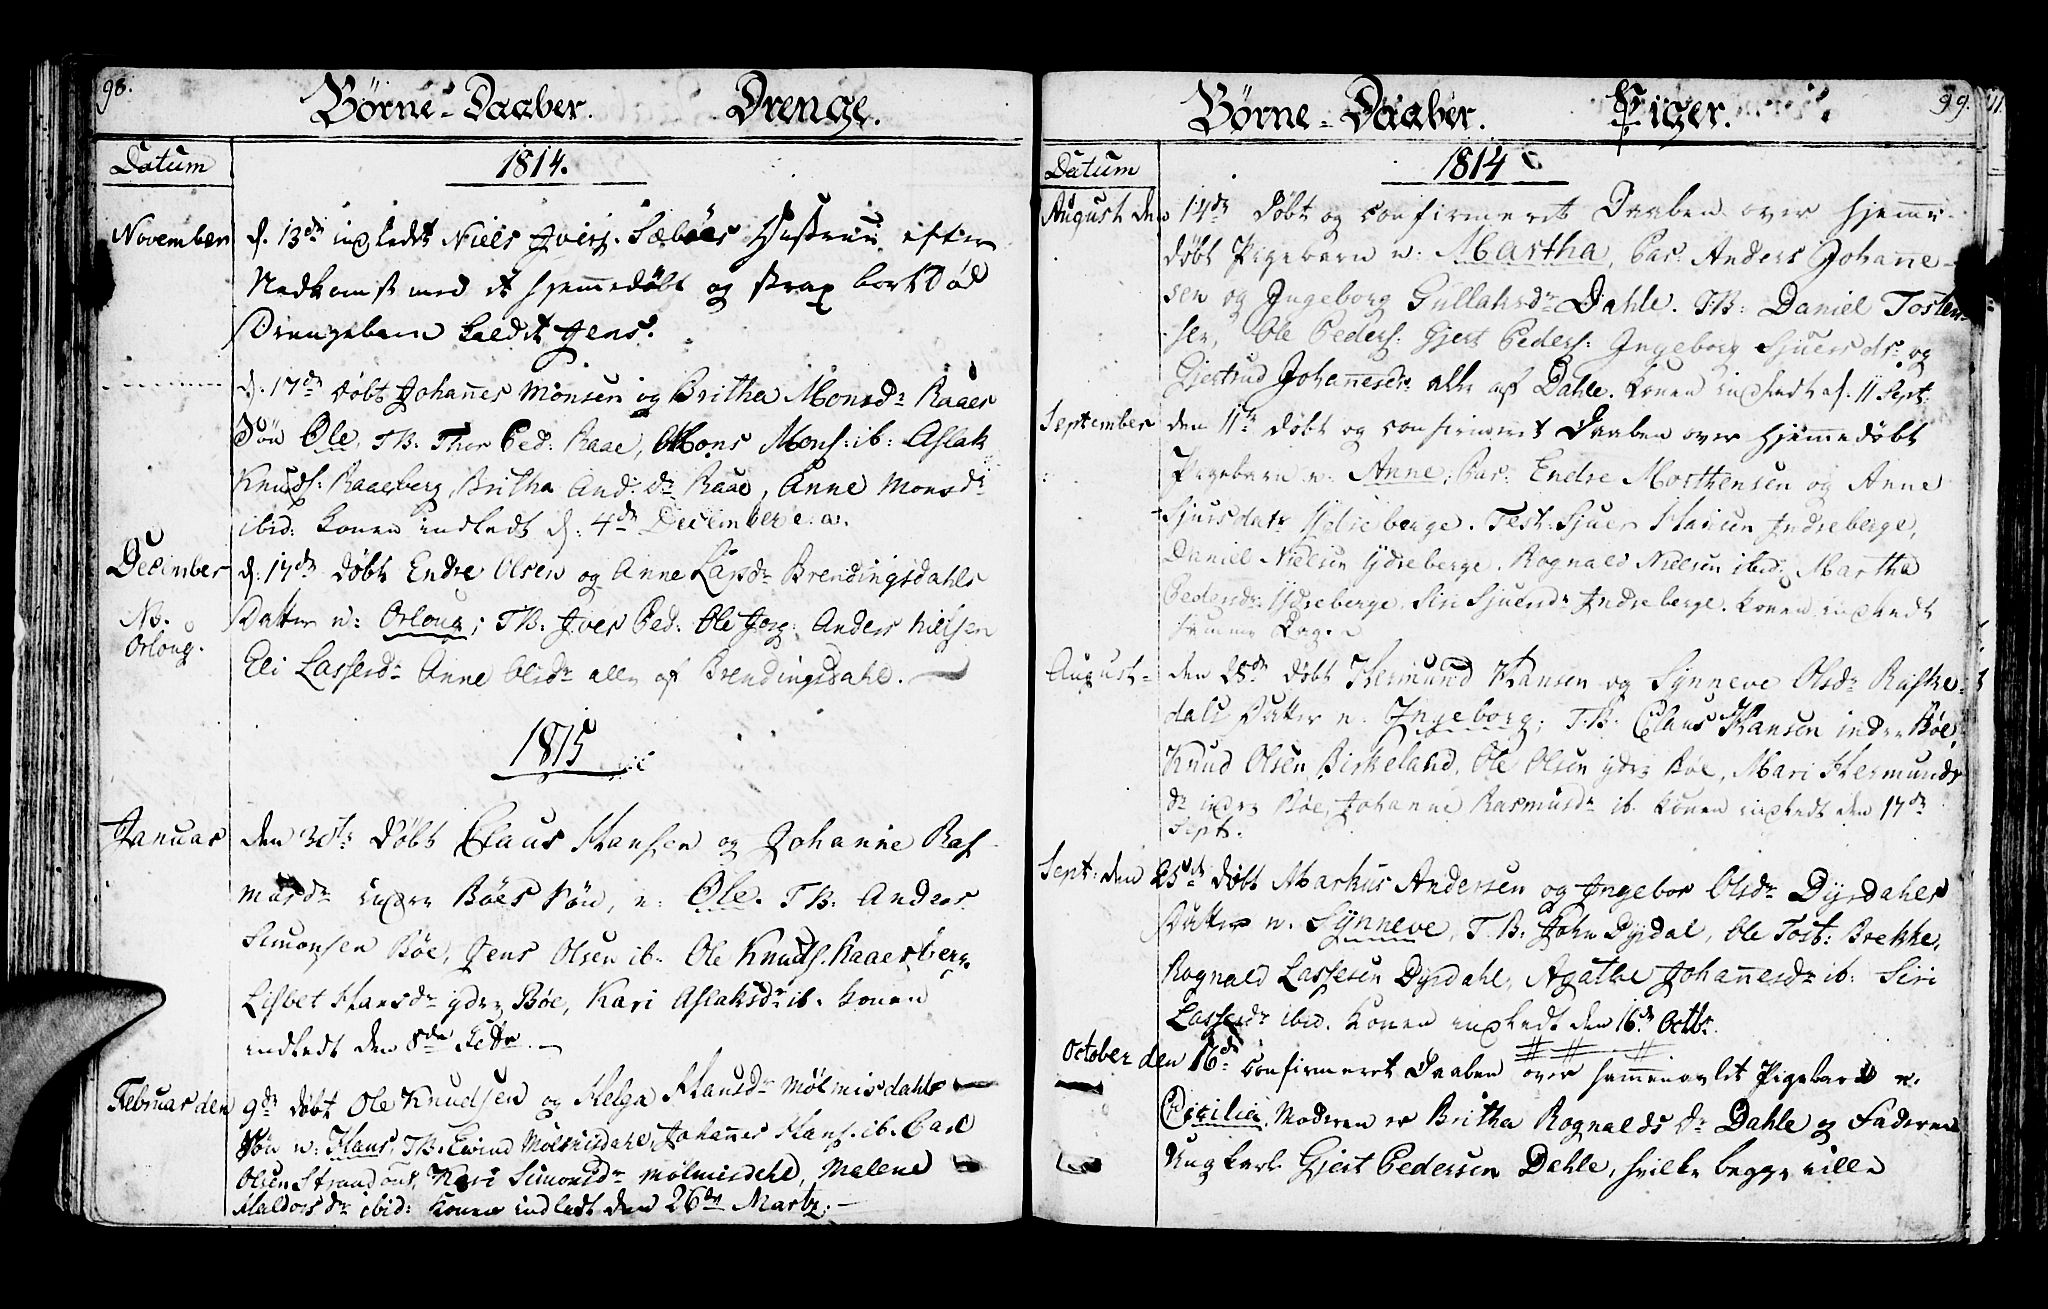 98.
Börne-Daaber. Drenge.
Datum
1814.
November d. 13de indledt Niels Ivers. Sæbøes Hustrue efter
Nedkomst med et hjemmedøbt og strax bortDød
Drengebarn kaldet Jens.
d: 17de døbt Johannes Monsen og Britha Monsdr Raaes
Søn Ole, TB: Thor Ped: Raae, Mons Mons: ib: Aslak
Knuds: Raaeberg, Britha And: dr Raae, Anne Monsdr
ibid: Konen indledt d: 4de December e. a.
December d: 17de døbt Endre Olsen og Anne Larsdr Brendingsdahls
NB.
Orloug.
Datter n: Orloug; TB: Iver Ped: Ole Jørg: Anders Nielsen
Eli Lassesdr Anne Olsdr alle af Brendingsdahl.
1815
Januar den 30te Døbt Claus Hansen og Johanne Ras
musdr indre Bøes Søn, n: Ole. TB: Anders
Simonsen Bøe, Jens Olsen ib: Ole Knuds. Raaesberg,
Lisbet Hansdr ydre Bøe, Kari Aslaksdr ib. Konen
indledt den 8de Febr.
Februar den 9de døbt Ole Knudsen og Helga Hansdr Mølmisdahls
Søn n: Hans, TB: Eivind Mølmisdahl, Johannes Hans. ib. Carl
Olsen Strand, Kari Simonsdr Mølmisdahl, Malene
Haldorsdr ibid: Konen indledt den 26de Marts.
99.
Börne-Daaber. Piger.
Datum
1814
August den 14de døbt og confirmeret Daaben over hjemme-
døbt Pigebarn n: Martha, Par: Anders Johanne-
sen og Ingeborg Gullaksdr Dahle. TB: Daniel Tosten-
sen, Ole Peders: Gjert Peders: Ingeborg Sjursdr og
Gjertrud Johannesdr alle af Dahle. Konen indledt d. 11 Sept.
September den 11te døbt og confirmeret Daaben over hjemmedøbt
Pigebarn n: Anne, Par: Endre Morthensen og Anne
Sjursdatr Ydreberge. Test: Sjur Indreberge,
Daniel Nielsen Ydreberge. Rognald Nielsen ibid: Martha
Pedersdr Ydreberge. Siri Sjursdr Indreberge. Konen indledt
samme Dag.
August den 28de døbt Hermund Hansen og Synneve Olsdr Raske-
dals Datter n: Ingeborg; T.B. Claus Hansen indre Bøe,
Knud Olsen Birkeland, Ole Olsen ydre Bøe, Mari Hermunds
dr indre Bøe, Johanne Rasmusdr ib. Konen indledt den 17de
Sept.
Sept: den 25de døbt Markus Andersen og Ingebor Olsdr Dyrdahls
Datter n. Synneve, T.B: John Dyrdal, Ole Tost: Brekke,
Rognald Lassesen Dyrdahl, Agathe Johannesdr ib: Siri
Lassesdr ibid. Konen indledt den 16de Octbr.
October den 16de confirmeret Daaben over sammenavlet Pigebarn n.
Cicilia, Moderen er Britha Rognaldsdr Dahle og Faderen
Ungkarl Gjert Pedersen Dahle, hvilke begge ville